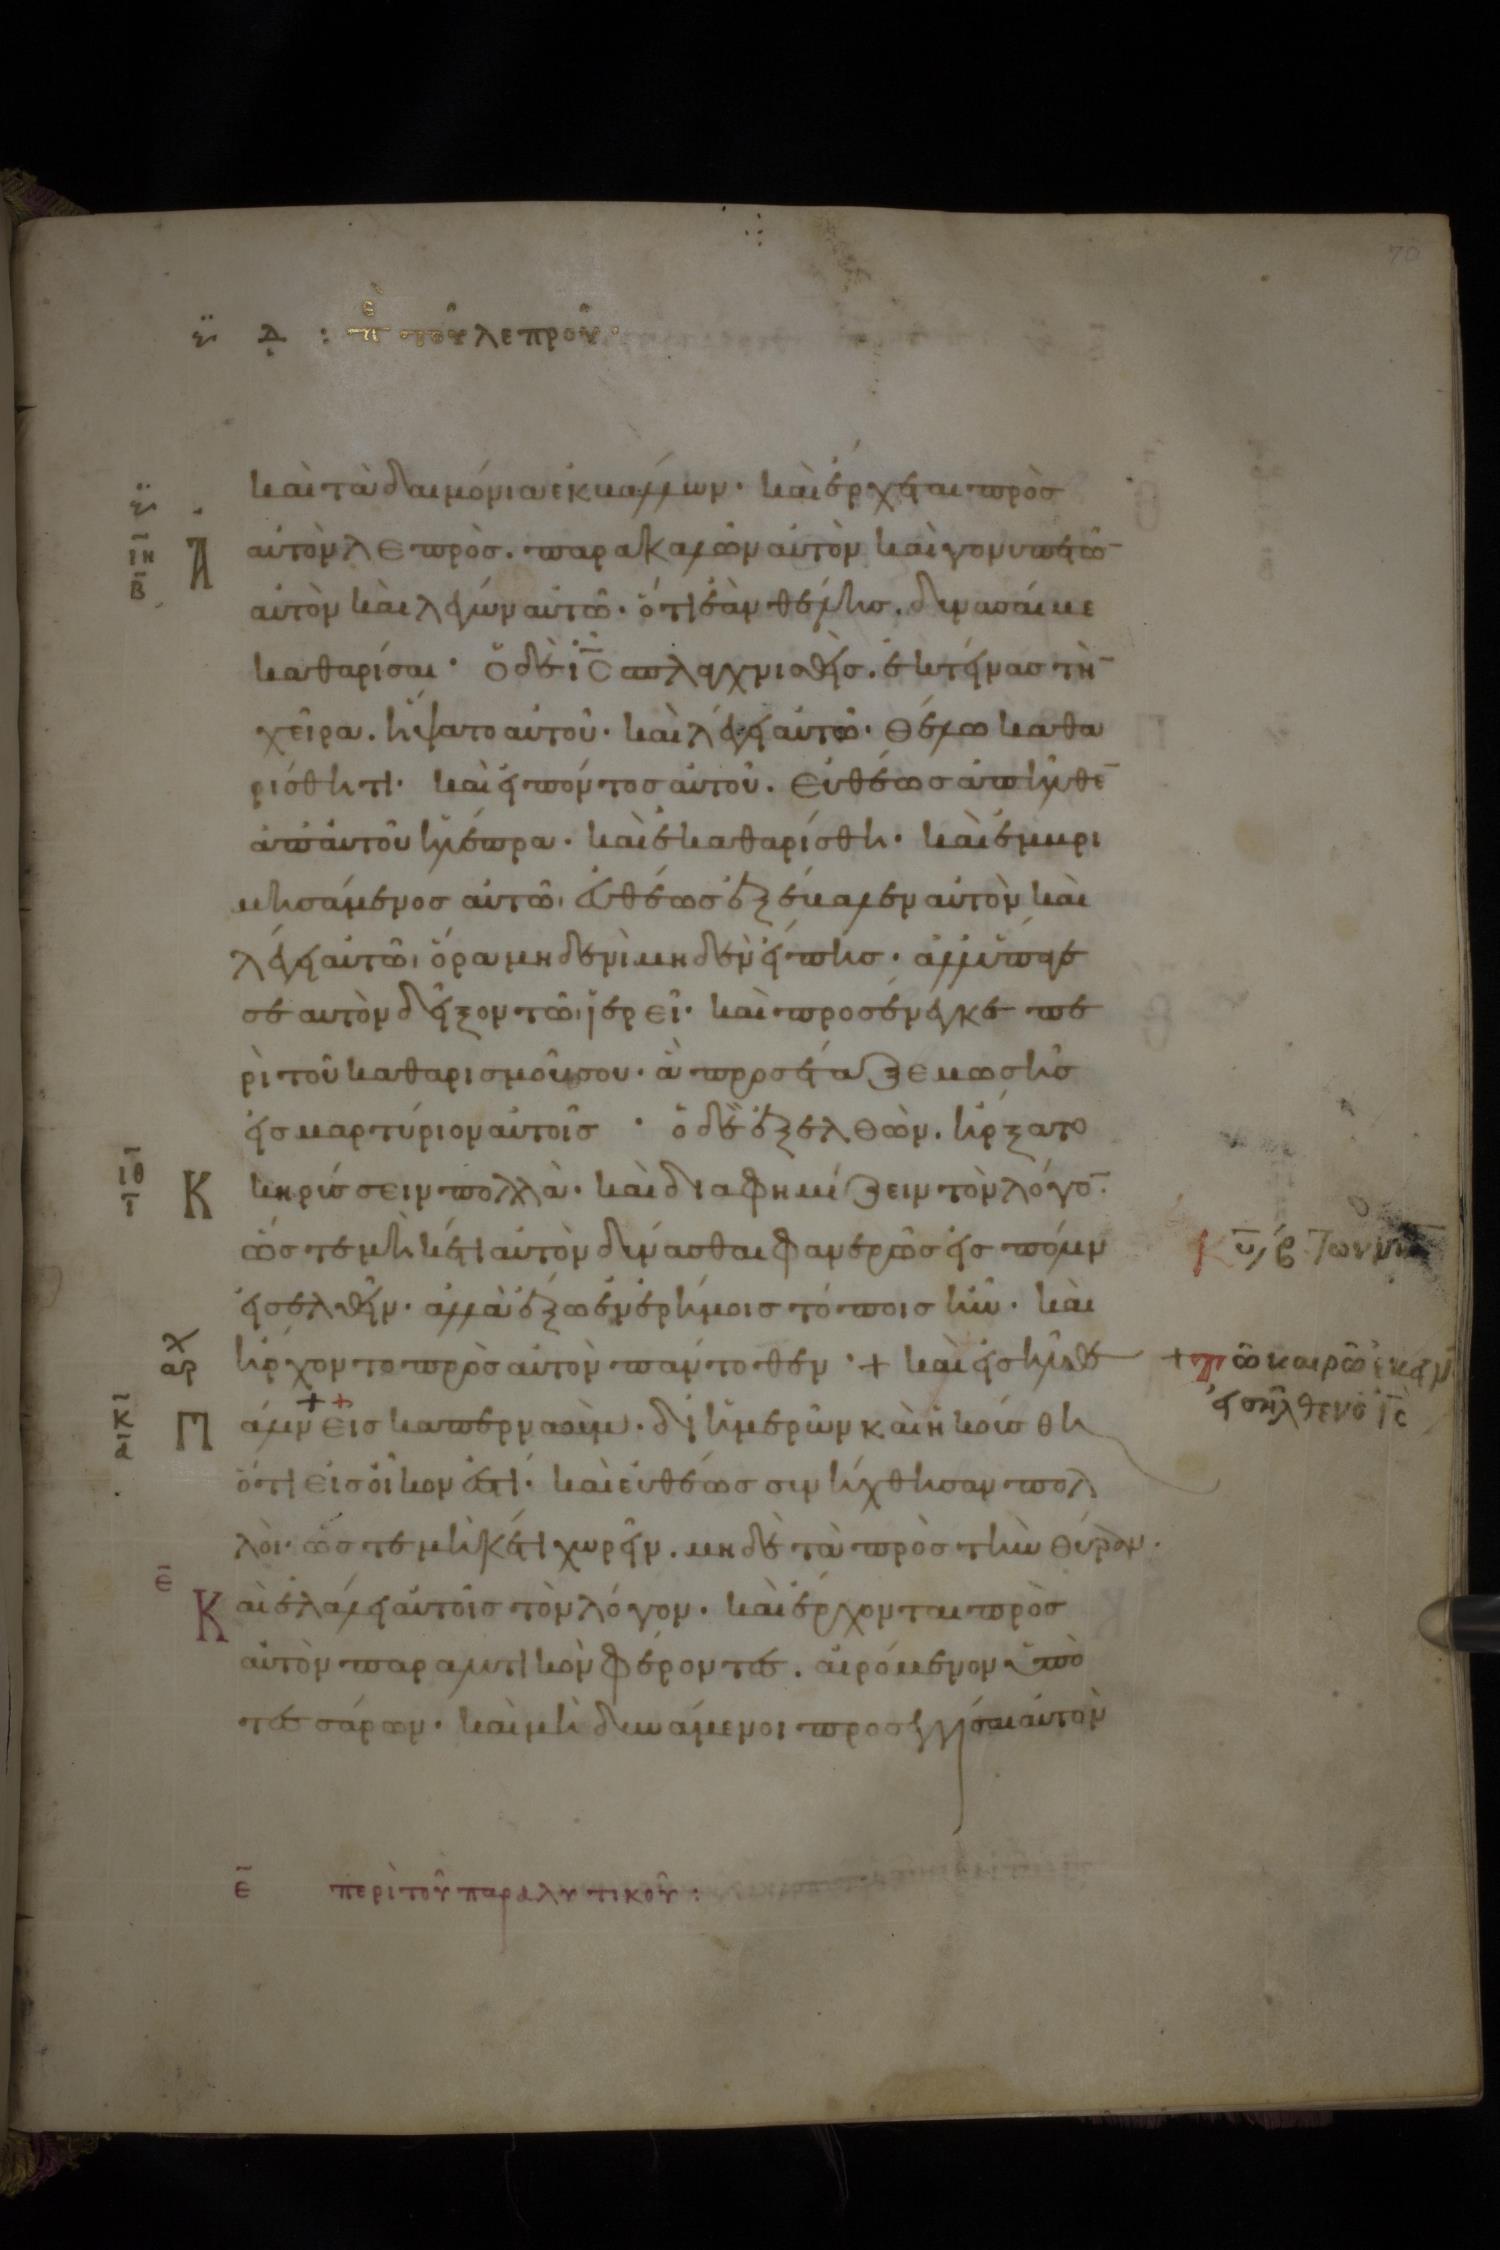 70
Δ : πε τοῦ λεπροῦ·
καὶ τὰ δαιμόνια ἐκβάλλων· καὶ ἔρχεται πρὸς
αὐτὸν λεπρὸς. παρακαλῶν αὐτὸν καὶ γονυπετῶ̄
αὐτὸν καὶ λέγων αὐτῶ· ὅτι ἐὰν θέλης. δύνασαί με
καθαρίσαι· ὁ δὲ ι̅ς̅ σπλαγχνισθεὶς. ἐκτείνας τὴ̄
χεῖρα. ἥψατο αὐτοῦ· καὶ λέγει αὐτῶ· θέλω καθα
ρίσθητι· καὶ εἰπόντος αὐτοῦ. εὐθέως ἀπῆλθε̄
ἀπ' αὐτοῦ ἡ λέπρα· καὶ ἐκαθαρίσθη· καὶ ἐμβρι
μησάμενος αὐτῶ, εὐθέως ἐξέβαλεν αὐτὸν καὶ
λέγει αὐτῶ, ὅρα μηδενὶ μηδὲν εἴπης· ἀλλ' ὕπαγε
σεαυτὸν δεῖξον τῶ ἱερεῖ· καὶ προσένεγκε πε
ρὶ τοῦ καθαρισμοῦ σου· ἃ προσέταξε μωσῆς
εἰς μαρτύριον αὐτοῖς · ὁ δὲ ἐξελθὼν. ἤρξατο
κηρύσσειν πολλὰ· καὶ διαφημίζειν τὸν λόγο̄·
ὥστε μὴ κέτι αὐτὸν δύνασθαι φανερῶς εἰς πόλιν
εἰσελθεῖν· ἀλλὰ ἔξω ἐν ἐρήμοις τόποις ἦν· καὶ
ἤρχοντο πρὸς αὐτὸν πάντοθεν ·+ καὶ εἰσῆλθε
+ τῶ καιρῶ ἐκείν
εἰσῆλθεν ὁ ι̅ς̅
πάλιν εἰς καπερναοὺμ. δι' ἡμερῶν καὶ ἠκούσθη
ὅτι εἰς οἶκον ἐστί· καὶ εὐθέως συνήχθησαν πολ
λοὶ· ὥστε μὴ κέτι χωρεῖν. μηδὲ τὰ πρὸς τὴν θύραν·
Καὶ ἐλάλει αὐτοῖς τὸν λόγον· καὶ ἔρχονται πρὸς
αὐτὸν παραλυτικὸν φέροντες. αἰρόμενον ὑπὸ
τεσσάρων· καὶ μὴ δυνάμενοι προσεγγίσαι αὐτὸν
ε̅ περὶ τοῦ παραλυτικοῦ :